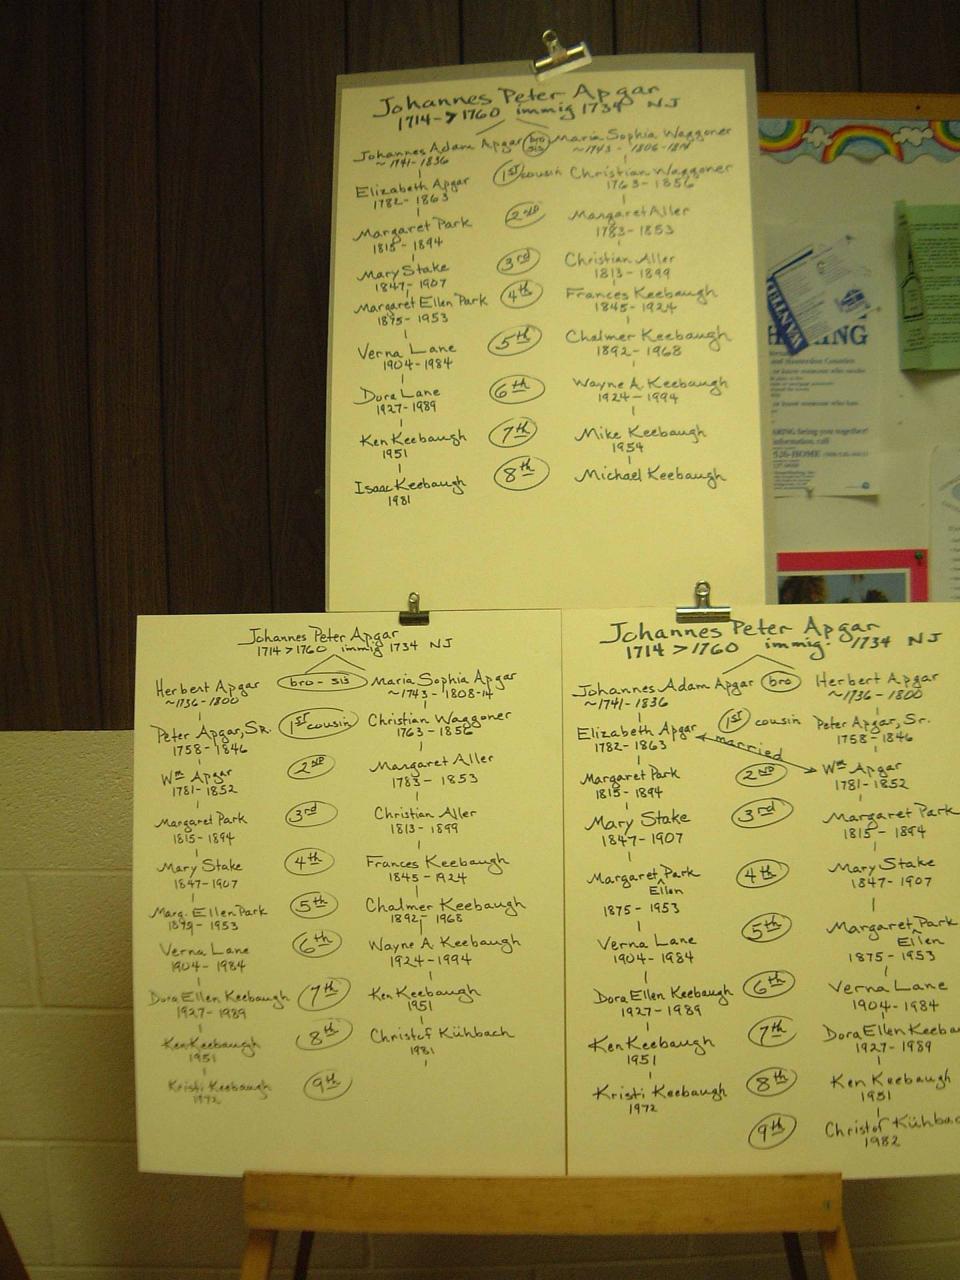 Johannes Peter Apgar
1714->1760 immig 1734 NJ
Johannes Adam Apgar bro sis Maria Sophia Waggoner
~1741-1836 ~1743-1806-1814
Elizabeth Apgar 1st cousin Christian Waggoner
1782-1863 1763-1856
Margaret Park 2nd Margaret Aller
1815-1894 1783-1853
Mary Stake 3rd Christian Aller
1847-1907 1813-1899
Margaret Ellen Park 4th Frances Keebaugh
1875-1953 1845-1924
Verna Lane 5th Chalmer Keebaugh
1904-1984 1892-1968
Dora Lane 6th Wayne A. Keebaugh
1927-1989 1924-1994
Ken Keebaugh 7th Mike Keebaugh
1951 1954
Isaac Keebaugh 8th Michael Keebaugh
1981
WANTED
ARING being you together!
information, call
526-HOME
Johannes Peter Apgar
1714>1760 immig 1734 NJ
Herbert Apgar bro-sis Maria Sophia Apgar
~1736-1800 ~1743-1808-14
Peter Apgar, Sr. 1st cousin Christian Waggoner
1758-1846 1763-1856
Wm Apgar 2nd Margaret Aller
1781-1852 1783-1853
Margaret Park 3rd Christian Aller
1815-1894 1813-1899
Mary Stake 4th Frances Keebaugh
1847-1907 1845-1924
Marg. Ellen Park 5th Chalmer Keebaugh
1875-1953 1892-1968
Verna Lane 6th Wayne A. Keebaugh
1904-1984 1924-1994
Dora Ellen Keebaugh 7th Ken Keebaugh
1927-1989 1951
Ken Keebaugh 8th Christof Kühbach
1951 1981
Kristi Keebaugh 9th
1972
Johannes Peter Apgar
1714>1760 immig. 1734 NJ
Johannes Adam Apgar bro Herbert Apgar
~1741-1836 ~1736-1800
Elizabeth Apgar 1st cousin Peter Apgar, Sr.
1782-1863 married 1758-1846
Margaret Park 2nd Wm Apgar
1815-1894 1781-1852
Mary Stake 3rd Margaret Park
1847-1907 1815-1894
Margaret Ellen Park 4th Mary Stake
1875-1953 1847-1907
Verna Lane 5th Margaret Ellen Park
1904-1984 1875-1953
Dora Ellen Keebaugh 6th Verna Lane
1927-1989 1904-1984
Ken Keebaugh 7th Dora Ellen Keebau
1951 1927-1989
Kristi Keebaugh 8th Ken Keebaugh
1972 1951
9th Christof Kühbac
1982